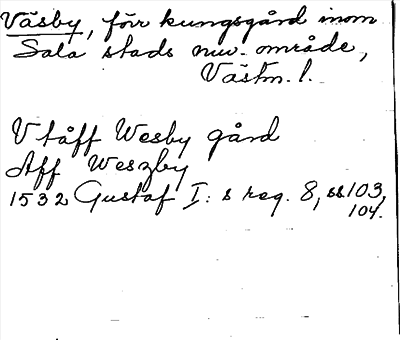 Väsby, förr kungsgård inom
Sala stads nuv. område,
Västm. l.
Vtåff Wesby gård
Aff Weszby
1532 Gustaf I: s reg. 8, ss. 103,
104.